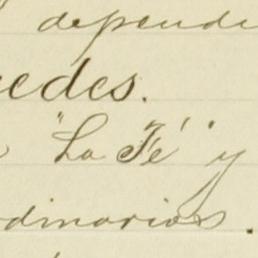 depende
edes.
"La Fé" y
dinarios.